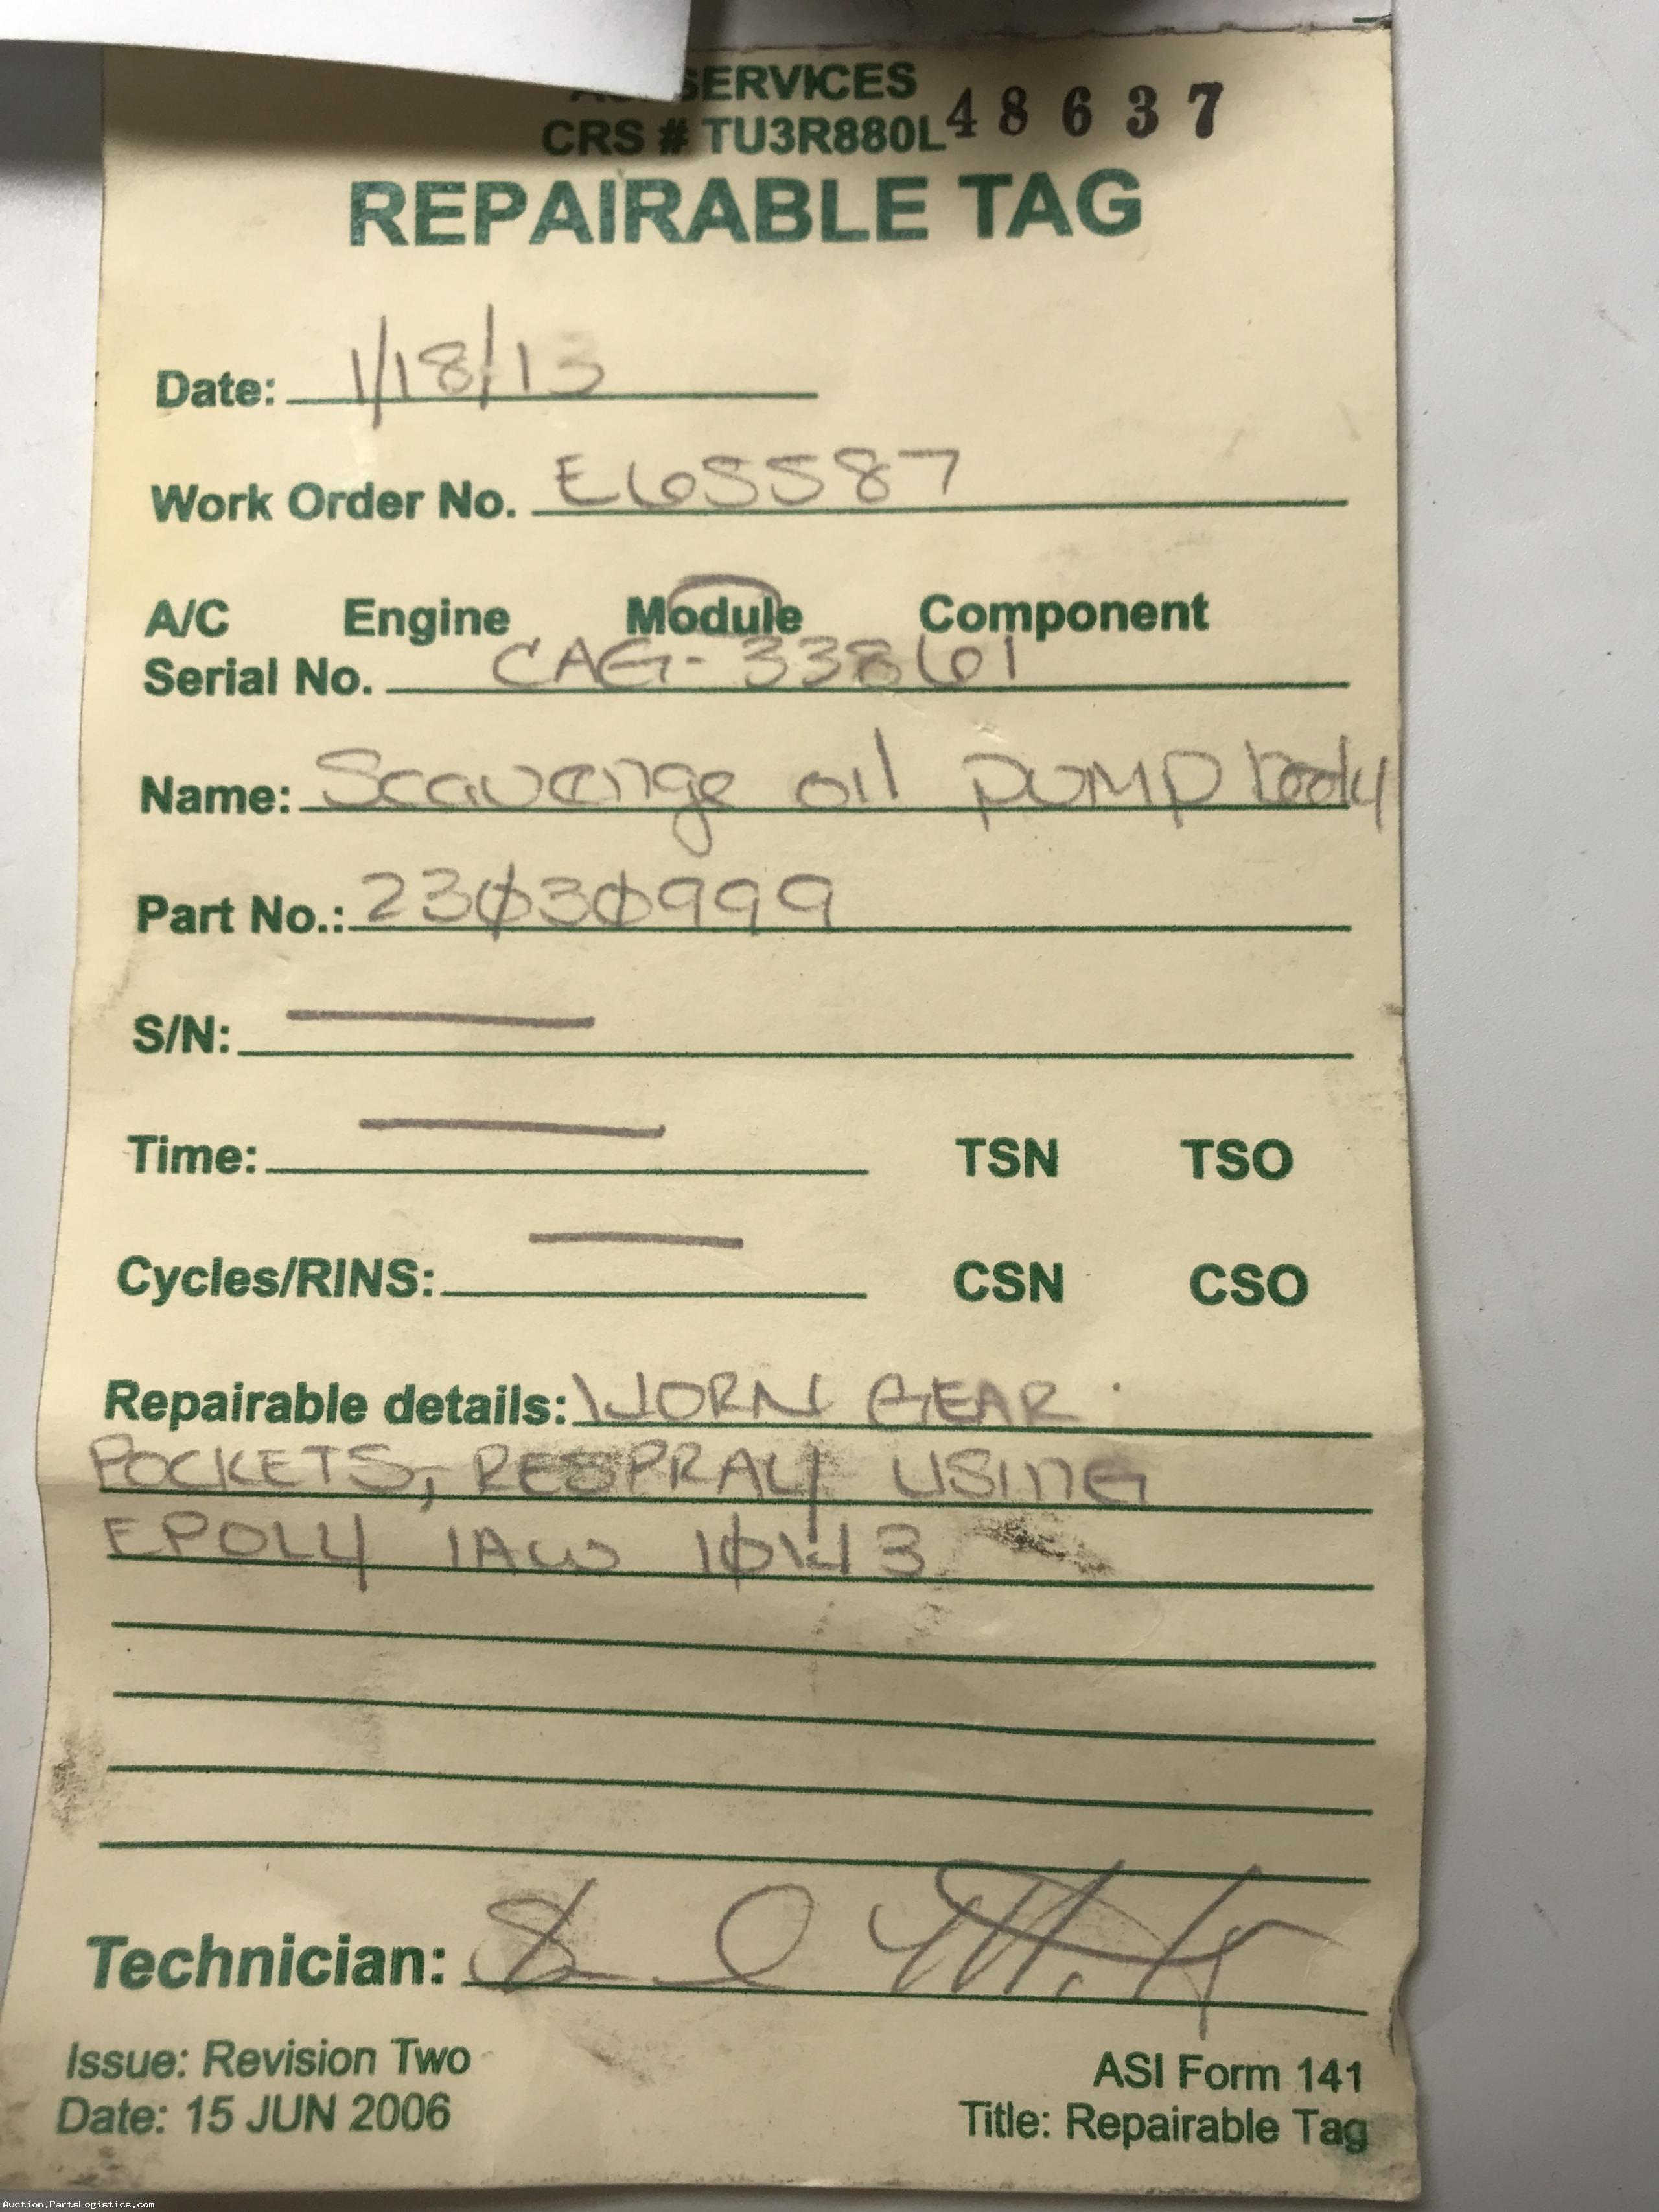 ASI SERVICES
CRS # TU3R880L 48637
REPAIRABLE TAG
Date: 1/18/13
Work Order No. E65587
A/C Engine Module Component
Serial No. CAG-33861
Name: Scavenge oil pump body
Part No.: 23030999
S/N:
Time: TSN TSO
Cycles/RINS: CSN CSO
Repairable details: WORN GEAR
POCKETS, RESPRAY USING
EPOLY IAW
Technician:
Issue: Revision Two
Date: 15 JUN 2006
ASI Form 141
Title: Repairable Tag
Auction.PartsLogistics.com